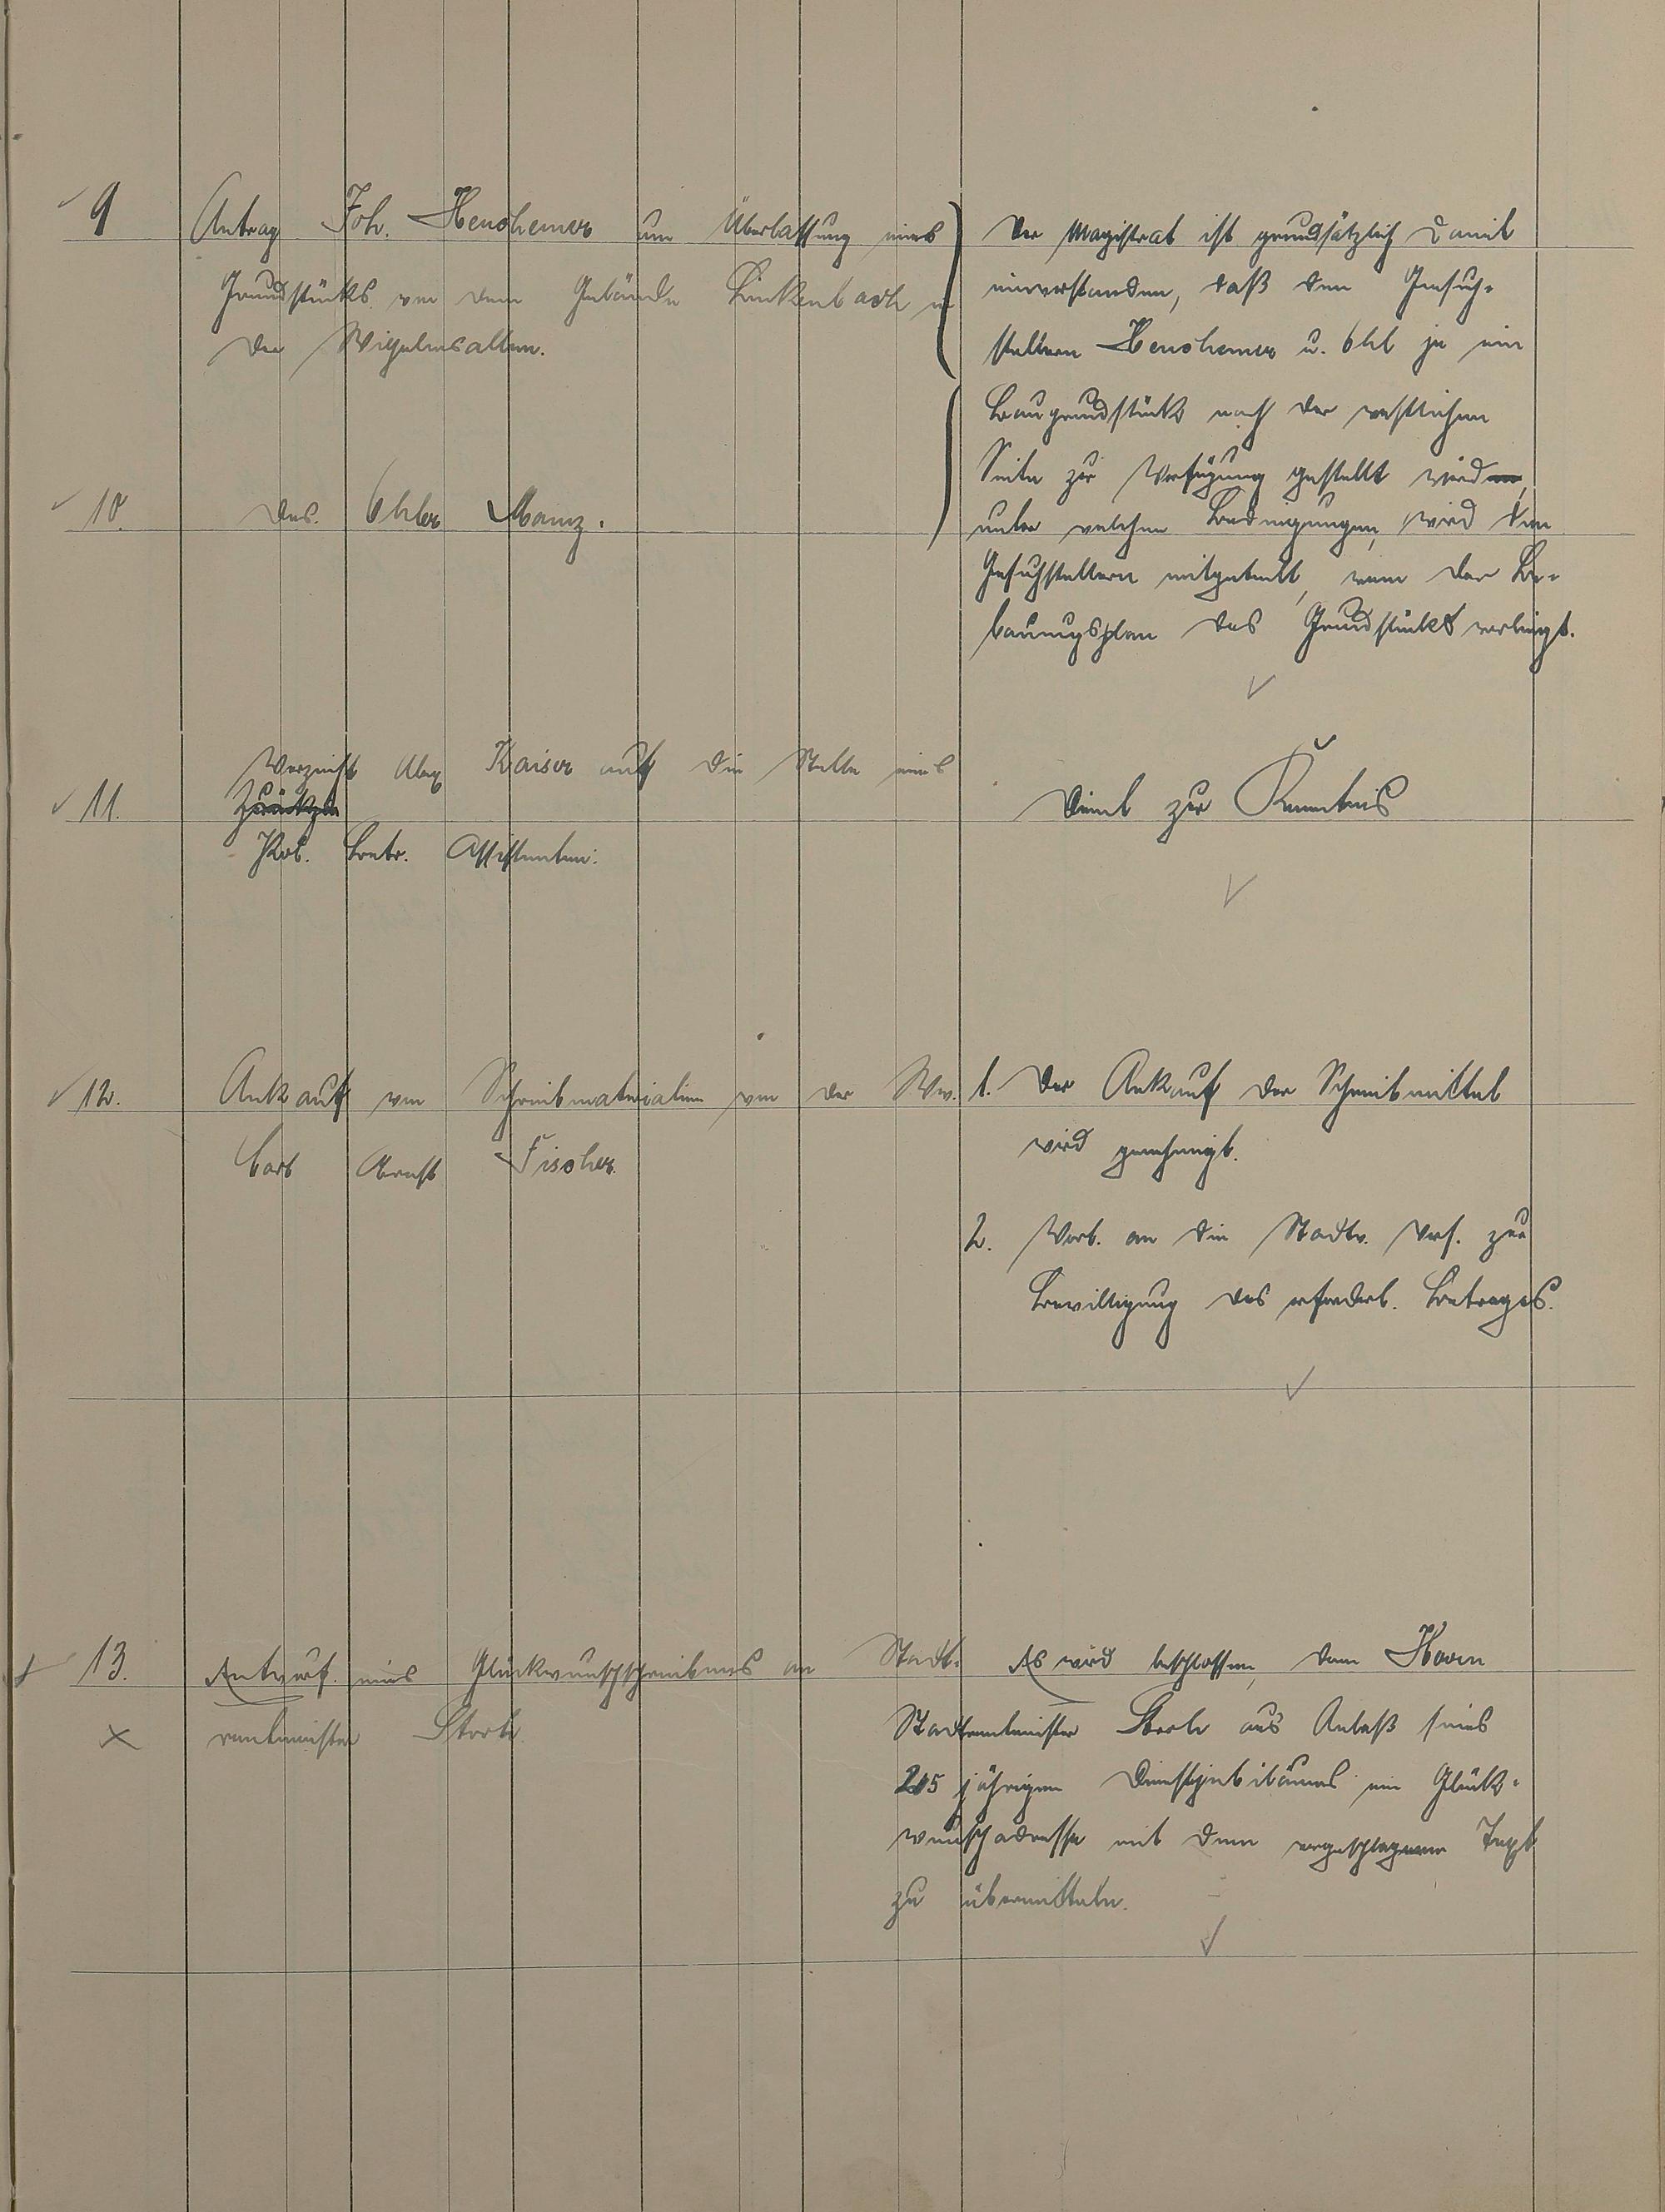 9 Antrag Joh. Henshemer um Überlassung eines
Grundstücks von dem Gelände Linkenbach in
der Wilhelmsallee.
Der Magistrat ist grundsätzlich damit
einverstanden, daß den Gesuch-
stellern Henshemer u. Ohl je ein
Baugrundstück nach der westlichen
Seite zur Verfügung gestellt wird
unter welchen Bedingungen, wird den
Gesuchstellern mitgeteilt, wenn der Be-
bauungsplan des Grundstücks vorliegt.
10. Des.
11. Verzicht Alex Kaiser auf die Stelle eines
Betr. Assistenten.
Dient zur Kenntnis
12. Ankauf von Schreibmaterialien von der Ww.
Carl Ernst Fischer.
1. Der Ankauf der Schreibmittel
wird genehmigt.
2. Vorl. an die Stadtv. Vers. zur
Bewilligung des erforderl. Betrages.
13. Entwurf eines Glückwunschschreibens an Stadt-
rentmeister Storck
Es wird beschlossen, dem Herrn
Stadtrentmeister Storck aus Anlaß seines
25 jährigen Dienstjubiläums ein Glück-
wunschadresse mit dem vorgeschlagenen Text
zu übermitteln.